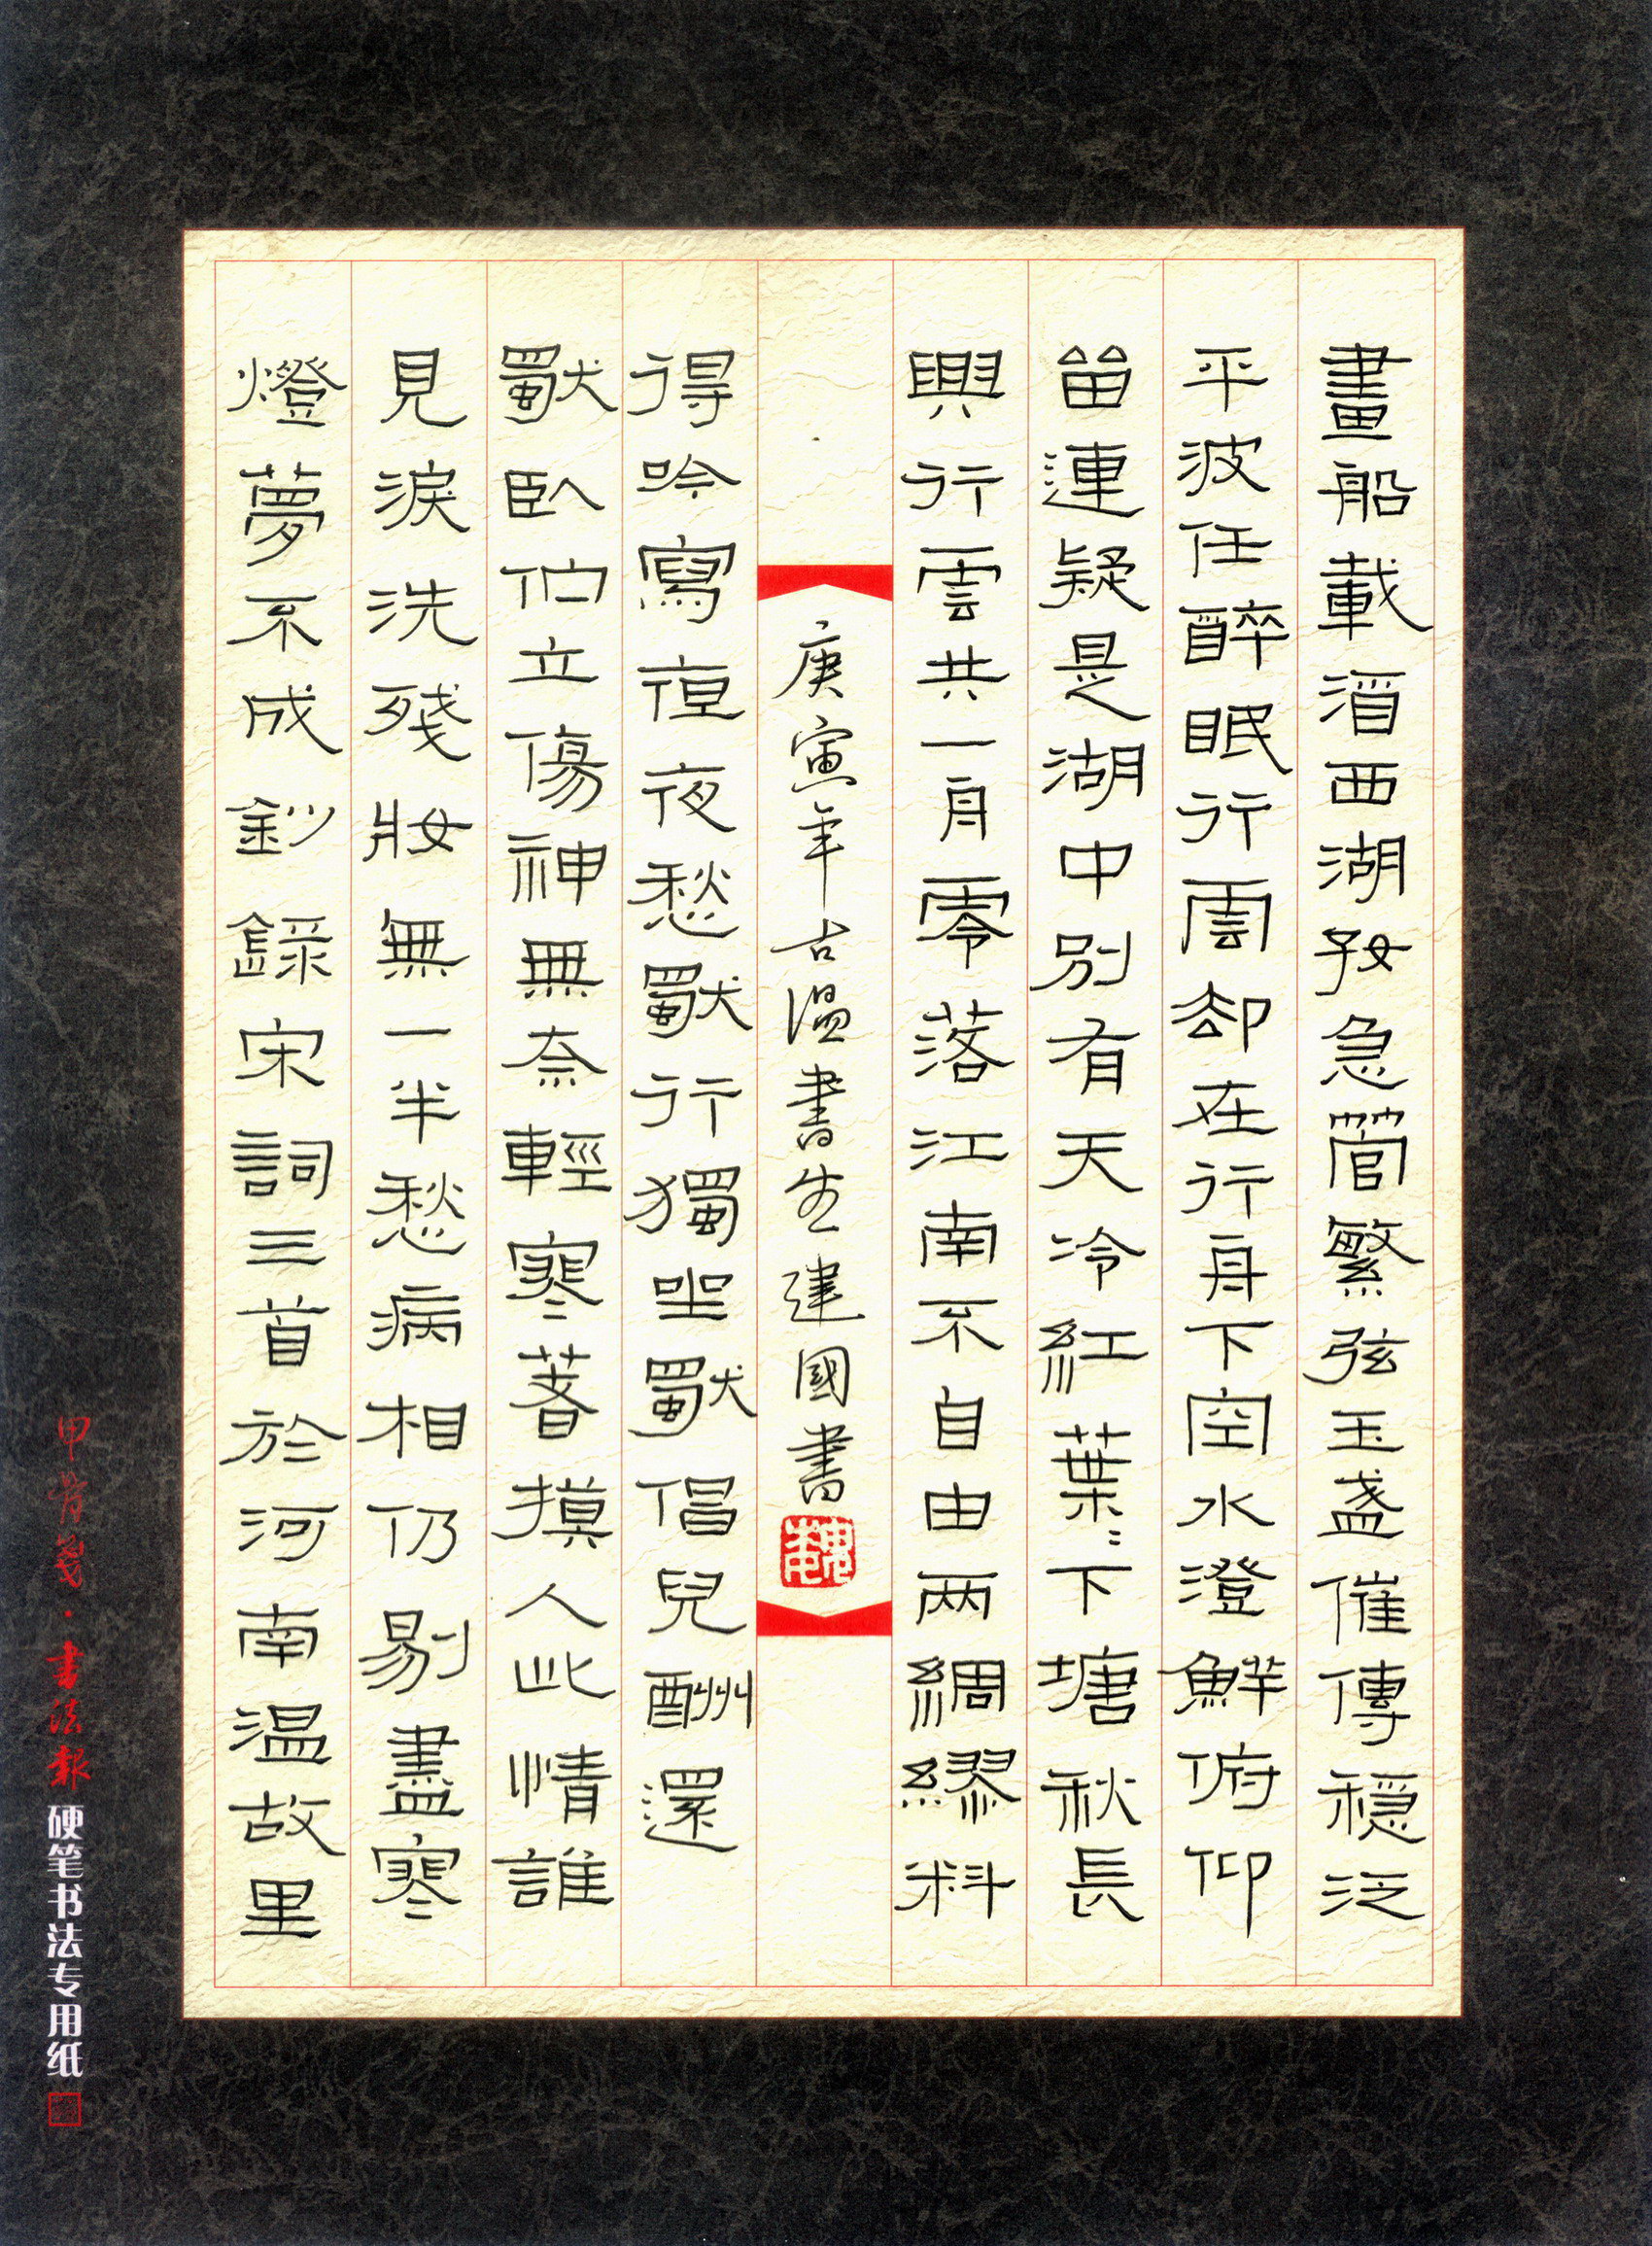 畫船載酒西湖好急管繁弦玉盞催傳穩泛
平波任醉眠行雲卻在行舟下空水澄鮮俯仰
留連疑是湖中別有天冷紅葉葉下塘秋長
興行雲共一舟零落江南不自由兩綢繆料
庚寅年古溫書生建國書
得吟鸞夜夜愁獨行獨坐獨倡獨酬還
獨臥佇立傷神無奈輕寒著摸人此情誰
見淚洗殘妝無一半愁病相仍剔盡寒
燈夢不成鈔錄宋詞三首於河南温故里
甲骨箋·書法報硬笔书法专用纸